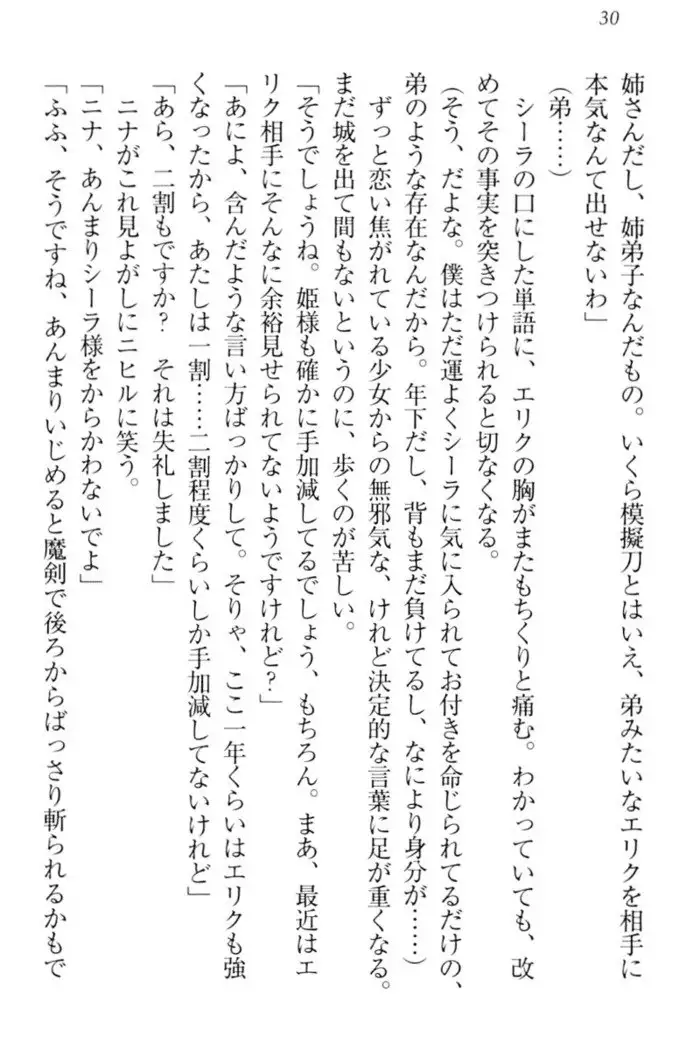 30
姉さんだし、姉弟子なんだもの。いくら模擬刀とはいえ、弟みたいなエリクを相手に
本気なんて出せないわ」
(弟……)
　シーラの口にした単語に、エリクの胸がまたもちくりと痛む。わかっていても、改
めてその事実を突きつけられると切なくなる。
(そう、だよな。僕はただ運よくシーラに気に入られてお付きを命じられてるだけの、
弟のような存在なんだから。年下だし、背もまだ負けてるし、なにより身分が……)
　ずっと恋い焦がれている少女からの無邪気な、けれど決定的な言葉に足が重くなる。
まだ城を出て間もないというのに、歩くのが苦しい。
「そうでしょうね。姫様も確かに手加減してるでしょう、もちろん。まあ、最近はエ
リク相手にそんなに余裕見せられてないようですけれど？」
「あによ、含んだような言い方ばっかりして。そりゃ、ここ一年くらいはエリクも強
くなったから、あたしは一割……二割程度くらいしか手加減してないけれど」
「あら、二割もですか？　それは失礼しました」
　ニナがこれ見よがしにニヒルに笑う。
「ニナ、あんまりシーラ様をからかわないでよ」
「ふふ、そうですね、あんまりいじめると魔剣で後ろからばっさり斬られるかもで